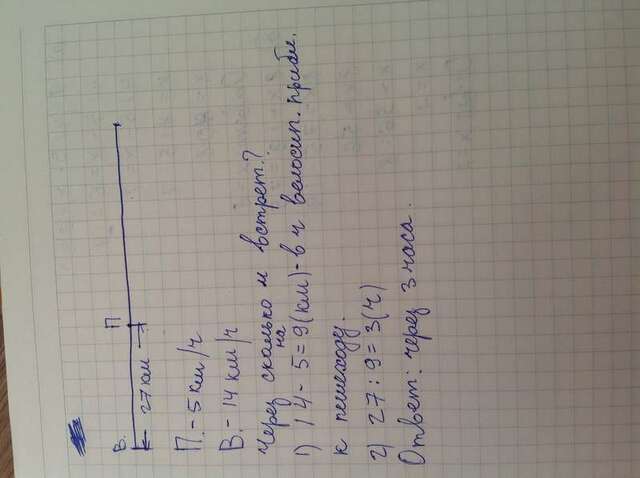 В. П
27 км
П. - 5 км/ч
В. - 14 км/ч
Через сколько ч встрет.?
на
1) 14 - 5 = 9 (км) - в ч велосип. прибл.
к пешеходу.
2) 27 : 9 = 3 (ч)
Ответ: через 3 часа.